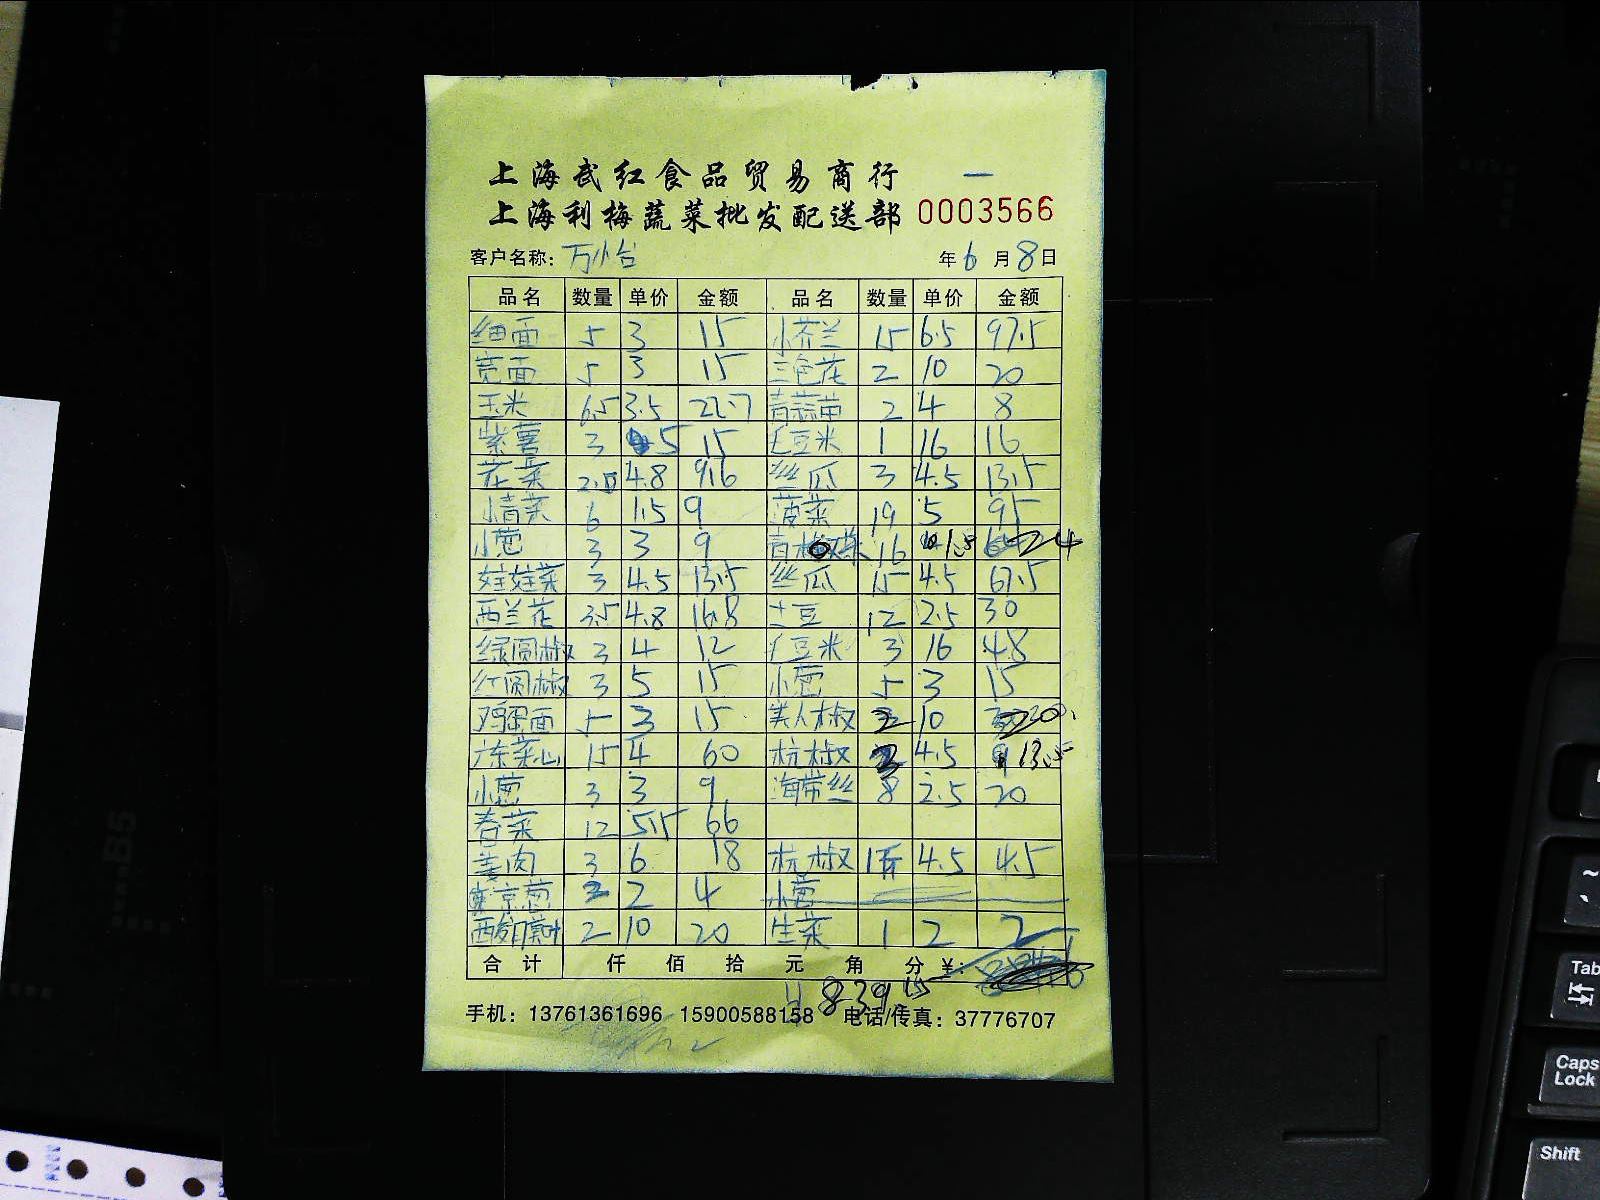 上海武红食品贸易商行 一
上海利梅蔬菜批发配送部 0003566
客户名称: 万怡 年6月8日
品名 数量 单价 金额 品名 数量 单价 金额
细面 5 3 15 小芥兰 15 6.5 97.5
宽面 5 3 15 三色花 2 10 20
玉米 6.5 3.5 22.7 青蒜苗 2 4 8
紫薯 3 5 15 毛豆米 1 16 16
花菜 4.8 9.6 丝瓜 3 4.5 13.5
小青菜 6 1.5 9 菠菜 19 5 95
小葱 3 3 9 青 菜 16 1.5 24
娃娃菜 3 4.5 13.5 丝瓜 15 4.5 67.5
西兰花 3.5 4.8 16.8 土豆 12 2.5 30
绿圆椒 3 4 12 毛豆米 3 16 48
红圆椒 3 5 15 小葱 5 3 15
鸡蛋面 5 3 15 美人椒 2 10 20
广东菜心 15 4 60 杭椒 3 4.5 13.5
小葱 3 3 9 海带丝 8 2.5 20
卷菜 12 5.5 66
姜肉 3 6 18 杭椒 1斤 4.5 4.5
京葱 2 2 4 小葱
2 10 20 生菜 1 2 2
合计 仟 佰 拾 元 角 分 ¥:
839.5
手机: 13761361696 15900588158 电话/传真: 37776707